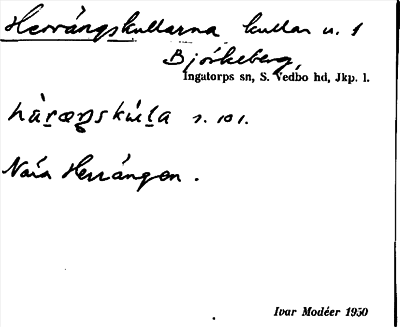 Herrängskullarna kullar u. 1
Björkeberg,
Ingatorps sn, S. Vedbo hd, Jkp. l.
s. 101.
Nära Herrängen.
Ivar Modéer 1950